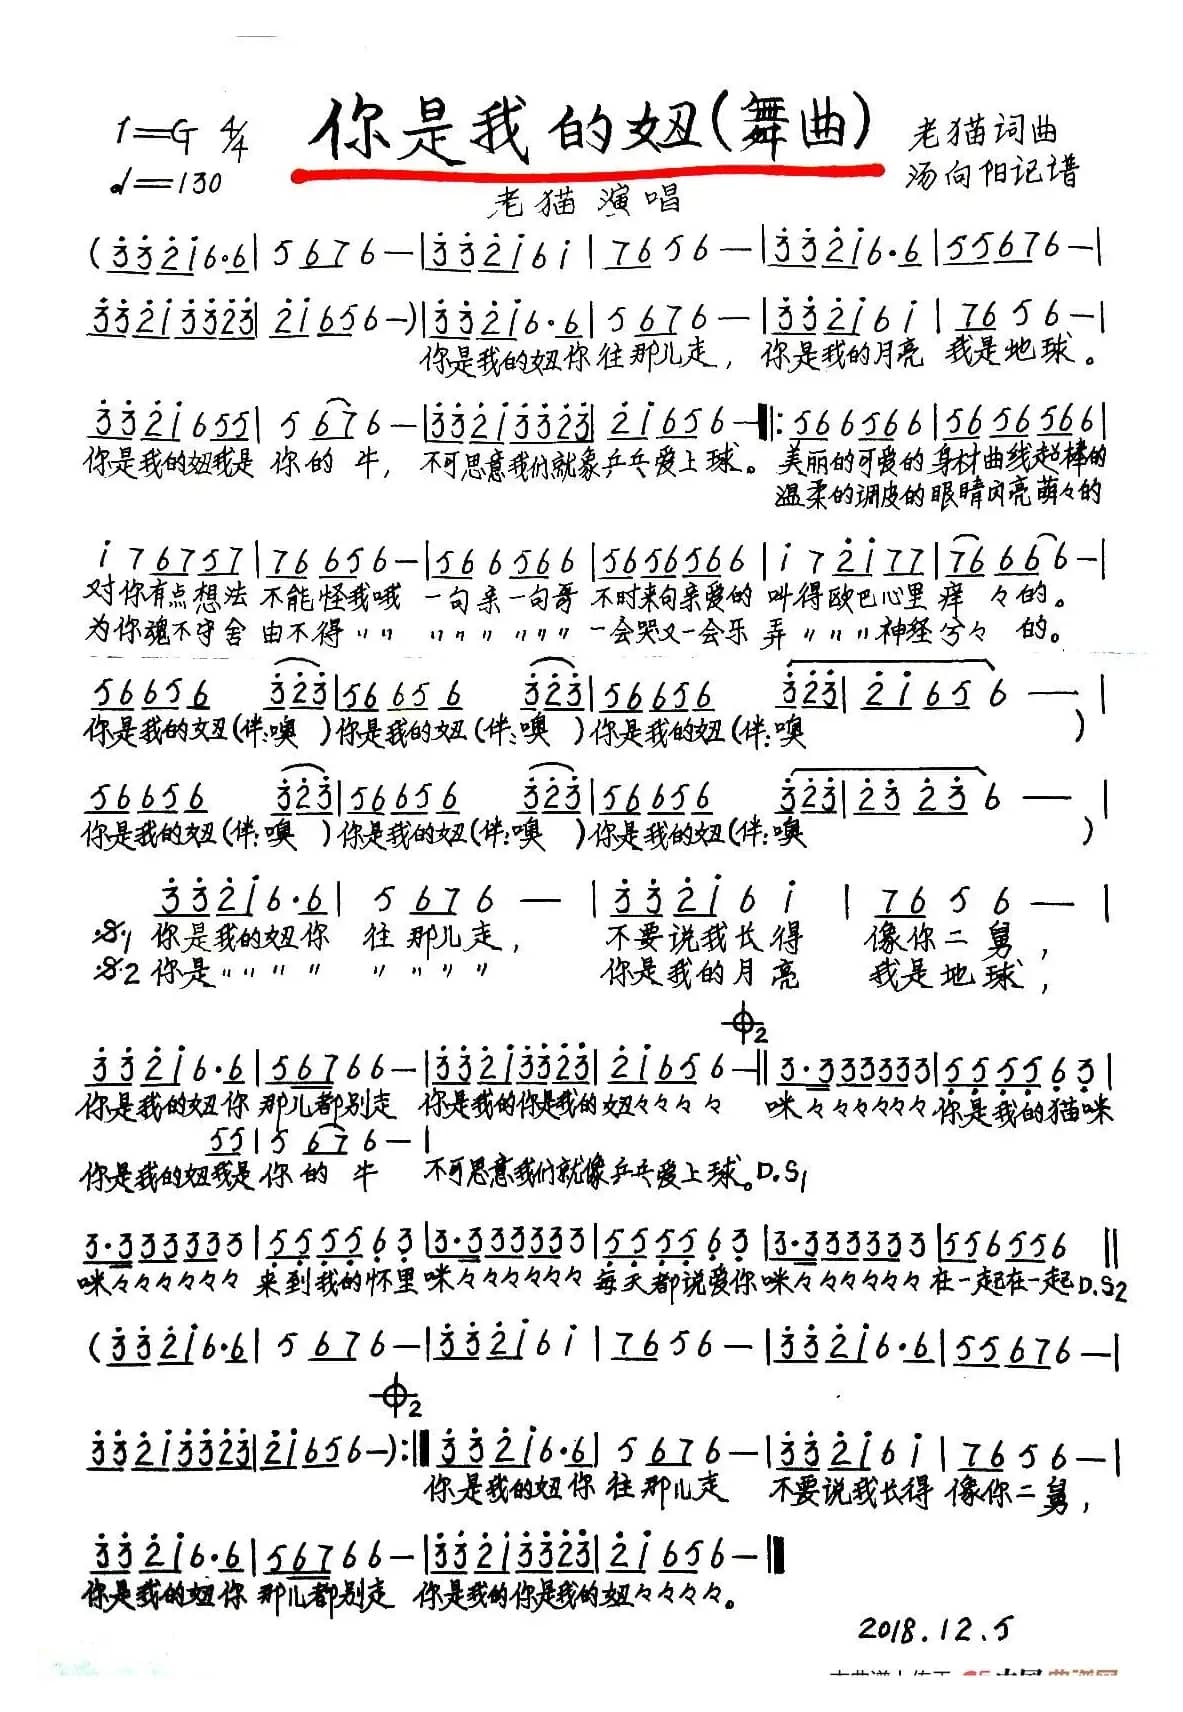 1=G 4/4 你是我的妞(舞曲) 老猫词曲
♩=130 汤向阳记谱
老猫演唱
(3̇3̇2̇1̇6·6| 5 676—|3̇3̇2̇1̇61̇|7656—|3̇3̇2̇1̇6·6|55676—|
3̇3̇2̇1̇3̇3̇2̇3̇|2̇1̇656—)|3̇3̇2̇1̇6·6|5 676—|3̇3̇2̇1̇61̇|7656—|
你是我的妞你往那儿走，你是我的月亮 我是地球。
3̇3̇2̇1̇655|5 676—|3̇3̇2̇1̇3̇3̇2̇3̇|2̇1̇656—‖:566566|56565666|
你是我的妞我是 你的 牛，不可思意我们就象乒乓爱上球。美丽的可爱的身材曲线超棒的
温柔的调皮的眼睛闪亮萌々的
1̇76757|76656—|566566|56565666|1̇72̇1̇77|76666—|
对你有点想法 不能怪我哦 一句亲一句哥 不时来句亲爱的 叫得欧巴心里痒々的。
为你魂不守舍 由不得〃〃 〃〃〃 〃〃〃 一会哭又一会乐 弄〃〃〃神经兮々 的。
56656 3̇2̇3̇|56656 3̇2̇3̇|56656 3̇2̇3̇|2̇1̇656—|
你是我的妞(伴:噢 )你是我的妞(伴:噢 )你是我的妞(伴:噢 )
56656 3̇2̇3̇|56656 3̇2̇3̇|56656 3̇2̇3̇|2̇3̇2̇3̇6—|
你是我的妞(伴:噢 )你是我的妞(伴:噢 )你是我的妞(伴:噢 )
3̇3̇2̇1̇6·6|5 676—|3̇3̇2̇1̇61̇|7656—|
𝄋1 你是我的妞你 往那儿走， 不要说我长得 像你二舅，
𝄋2 你是〃〃〃〃 〃〃〃〃 你是我的月亮 我是地球，
𝄌2
3̇3̇2̇1̇6·6|567666—|3̇3̇2̇1̇3̇3̇2̇3̇|2̇1̇656—‖3·3333333|5̣5̣5̣5̣6̣3̣|
你是我的妞你 那儿都别走 你是我的你是我的妞々々々々 咪々々々々々々 你是我的猫咪
55|5 676—|
你是我的妞我是 你的 牛 不可思意我们就像乒乓爱上球。D.S1
3·3333333|5̣5̣5̣5̣6̣3̣|3·3333333|5̣5̣5̣5̣6̣3̣|3·3333333|556556‖
咪々々々々々々 来到我的怀里 咪々々々々々々 每天都说爱你 咪々々々々々々 在一起在一起D.S2
(3̇3̇2̇1̇6·6|5 676—|3̇3̇2̇1̇61̇|7656—|3̇3̇2̇1̇6·6|55676—|
𝄌2
3̇3̇2̇1̇3̇3̇2̇3̇|2̇1̇656—):‖3̇3̇2̇1̇6·6|5 676—|3̇3̇2̇1̇61̇|7656—|
你是我的妞你 往那儿走 不要说我长得 像你二舅，
3̇3̇2̇1̇6·6|567666—|3̇3̇2̇1̇3̇3̇2̇3̇|2̇1̇656—‖
你是我的妞你 那儿都别走 你是我的你是我的妞々々々々。
2018.12.5